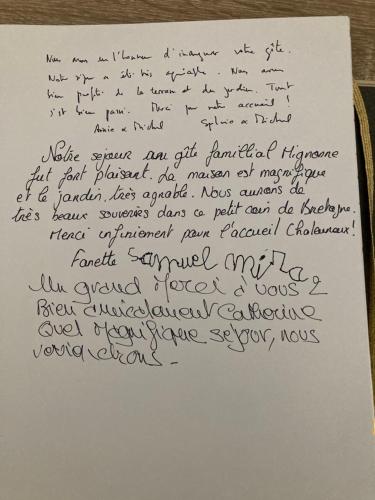 Nous avons eu l'honneur d'inaugurer votre gîte.
Notre séjour a été très agréable. Nous avons
bien profité de la terrasse et du jardin. Tout
s'est bien passé. Merci pour votre accueil !
Annie & Michel Sylvie & Michel
Notre sejour au gîte famillial Mignonne
fut fort plaisant. La maison est magnifique
et le jardin, très agréable. Nous aurons de
très beaux souvenirs dans ce petit coin de Bretagne.
Merci infiniement pour l'accueil Chaleureux!
Fanette Samuel Mina
Un grand Merci à vous 2
Bien amicalement Catherine
Quel Magnifique sejour, nous